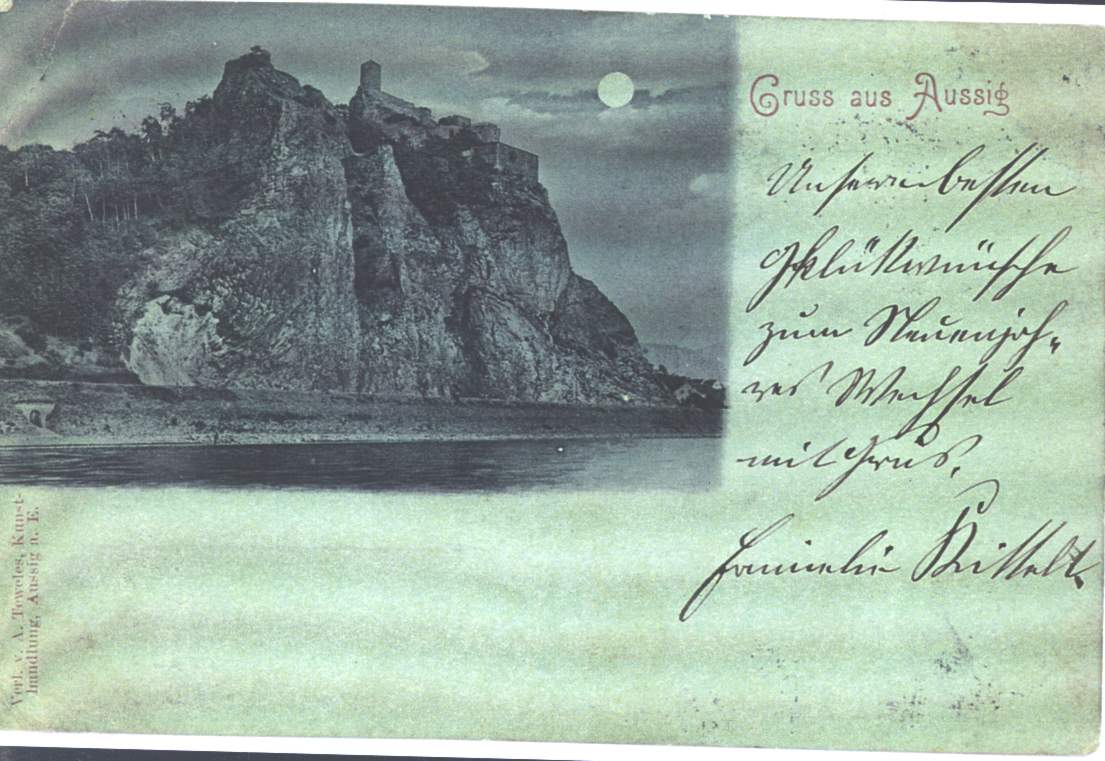 Gruss aus Aussig
Unsere besten
Glükwünsche
zum Neuenjah-
res Wechsel
mit Grus.
Familie Kittel
Verl. v. A. Teweles, Kunst-
handlung, Aussig a. E.